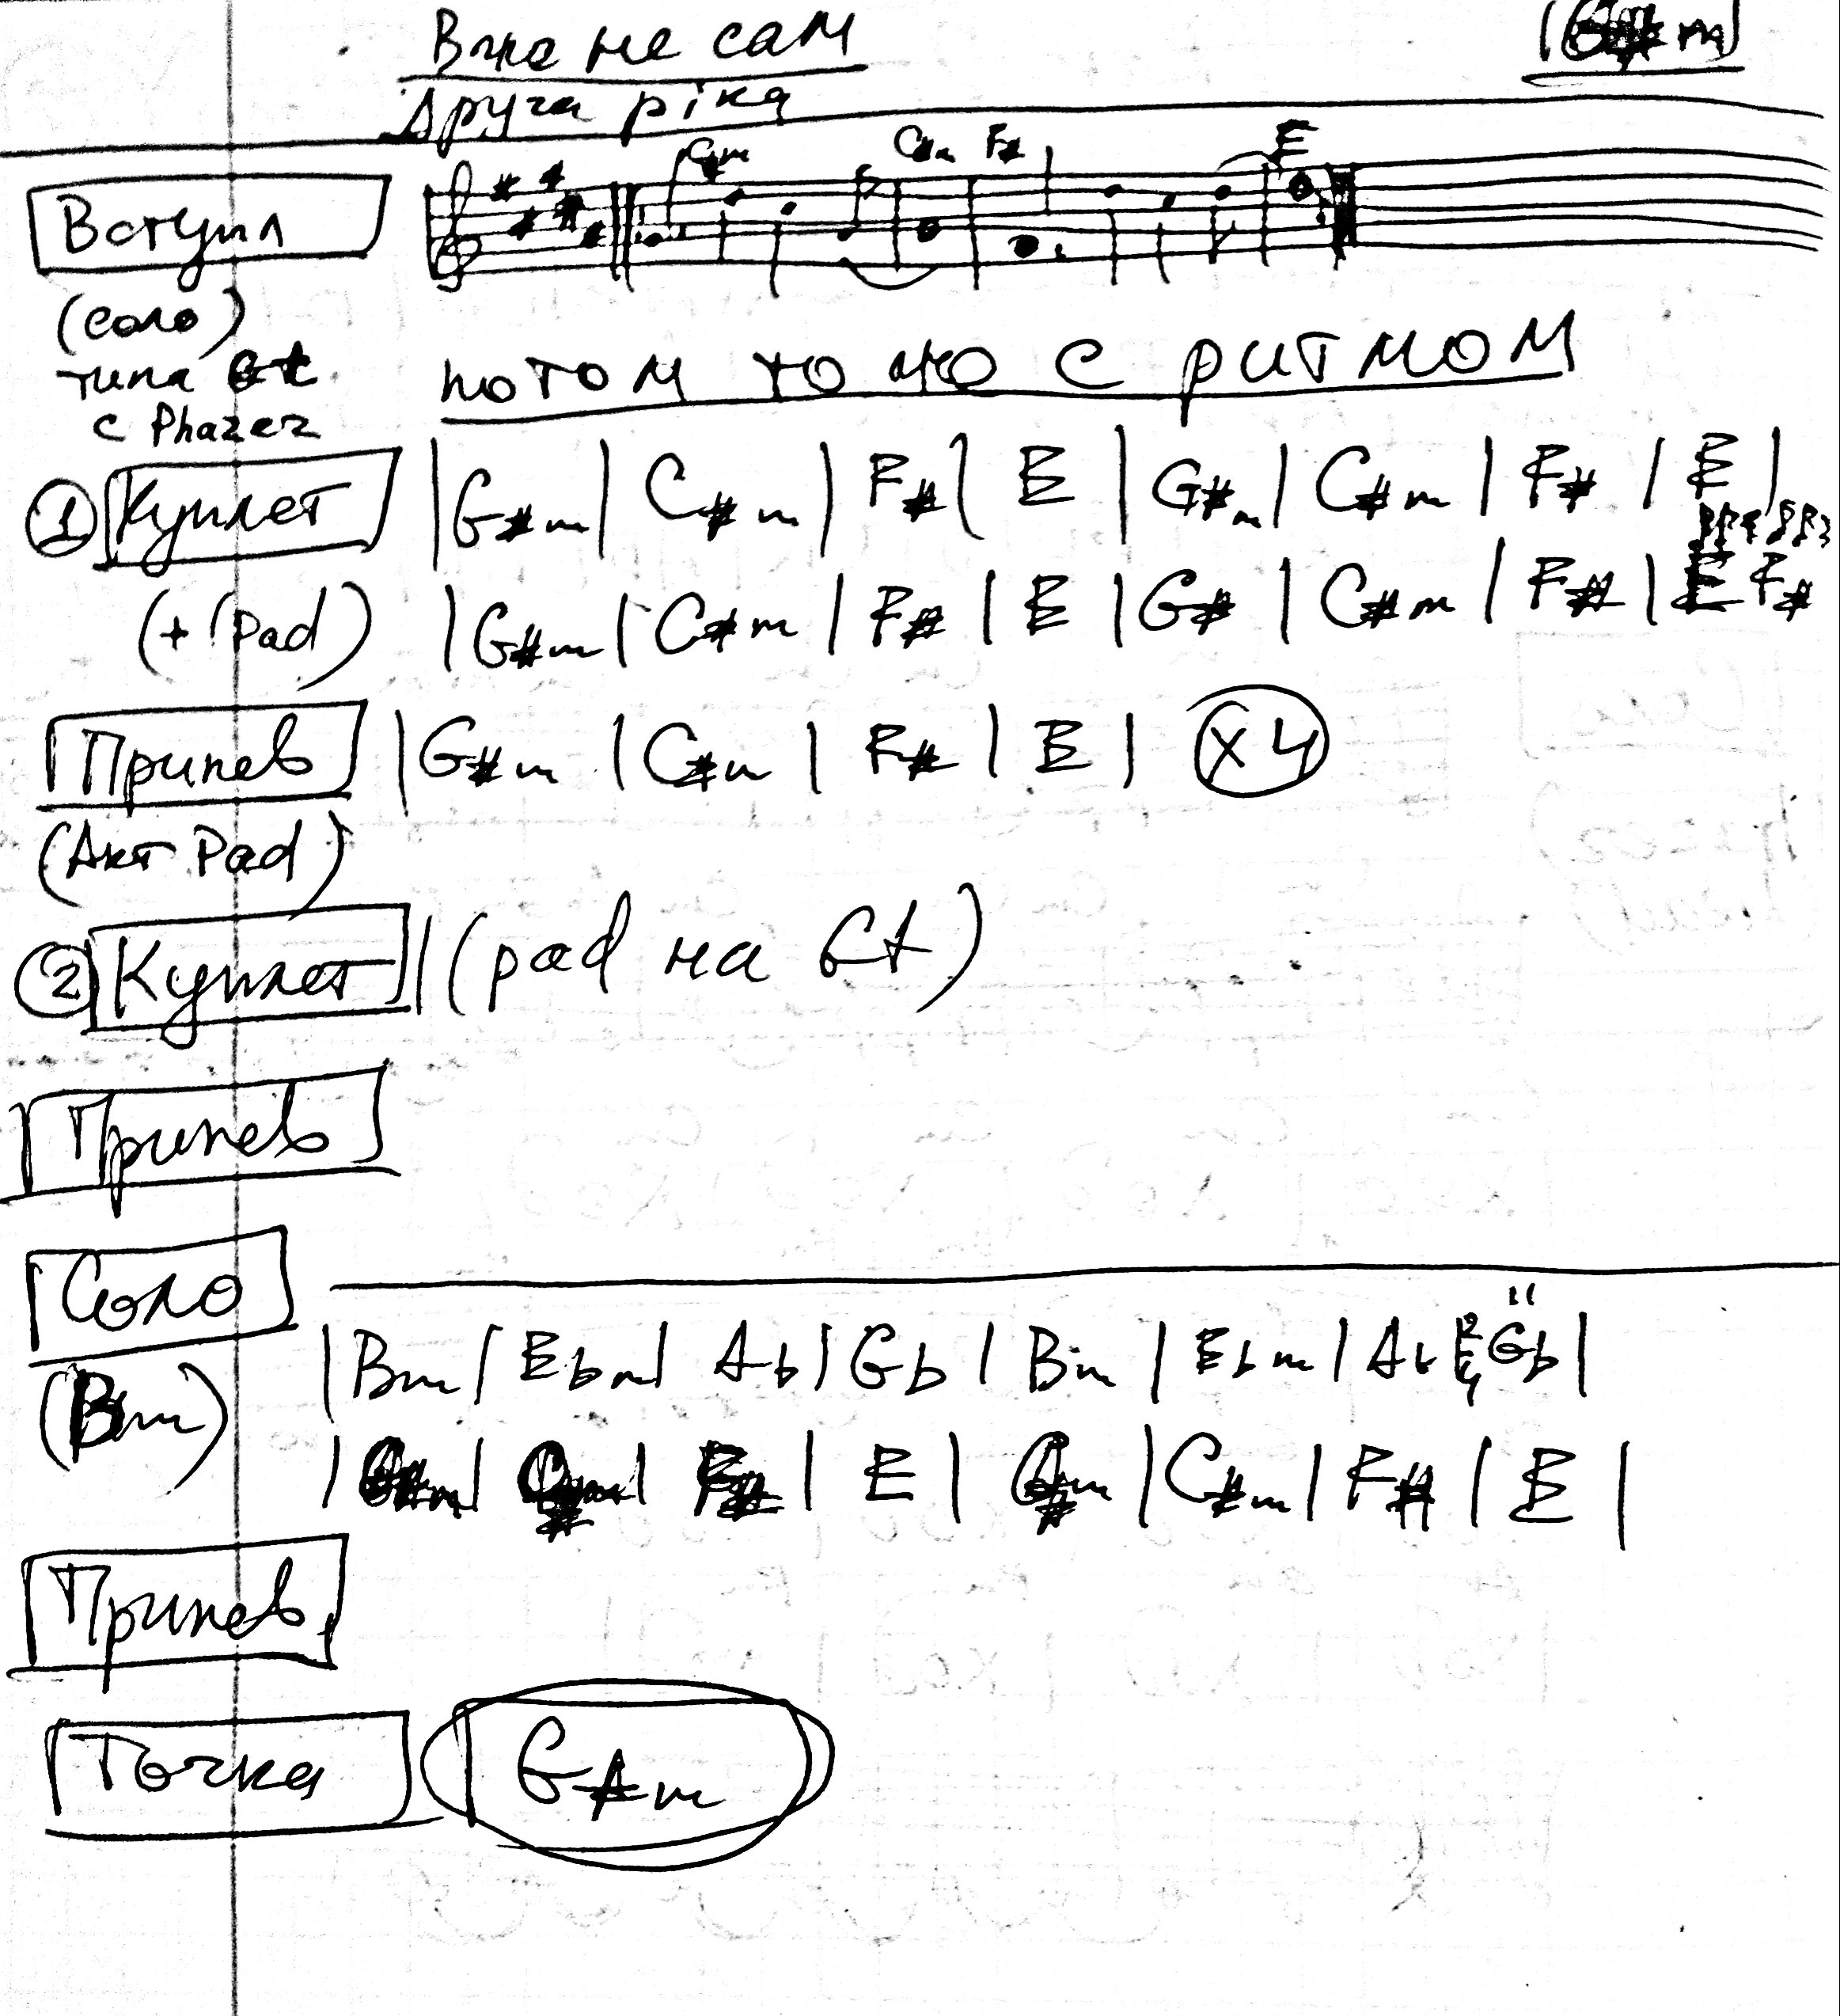 Вже не сам
Друга ріка
Вступл
C#m F# E
(соло)
типа Gt
с Phazer
потом то же с ритмом
① Куплет | G#m | C#m | F# | E | G#m | C#m | F# | E |
(+ Pad) | G#m | C#m | F# | E | G# | C#m | F# | E F#
Припев | G#m | C#m | F# | E | x4
(Акт Pad)
② Куплет | (pad на Gt)
Припев
Соло
(Bm) | Bm | Ebm | Ab | Gb | Bm | Ebm | Ab 2/4 Gb |
| G#m | C#m | F# | E | G#m | C#m | F# | E |
Припев
Точка G#m